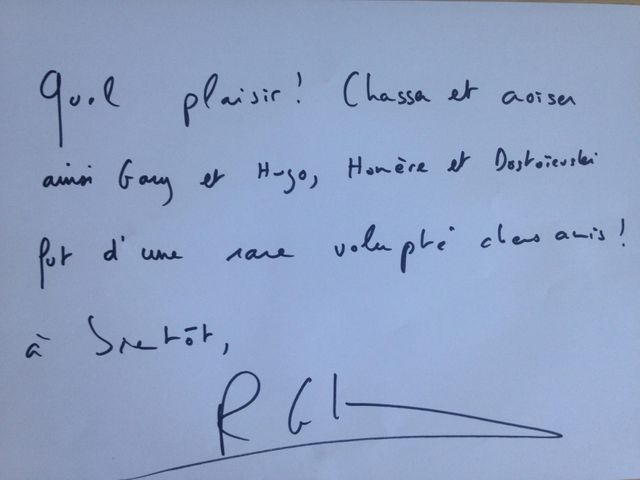 Quel plaisir! Chasser et croiser
ainsi Gary et Hugo, Homère et Dostoïevski
fut d'une rare volupté chers amis!
à bientôt,